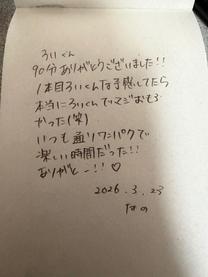 ろいくん
90分ありがとうございました!!
1本目ろいくんな予感してたら
本当にろいくんでマジおもろ
かった(笑)
いつも通りワンパクで
楽しい時間だった!!
ありがとー!!♡
2026.3.23
なの